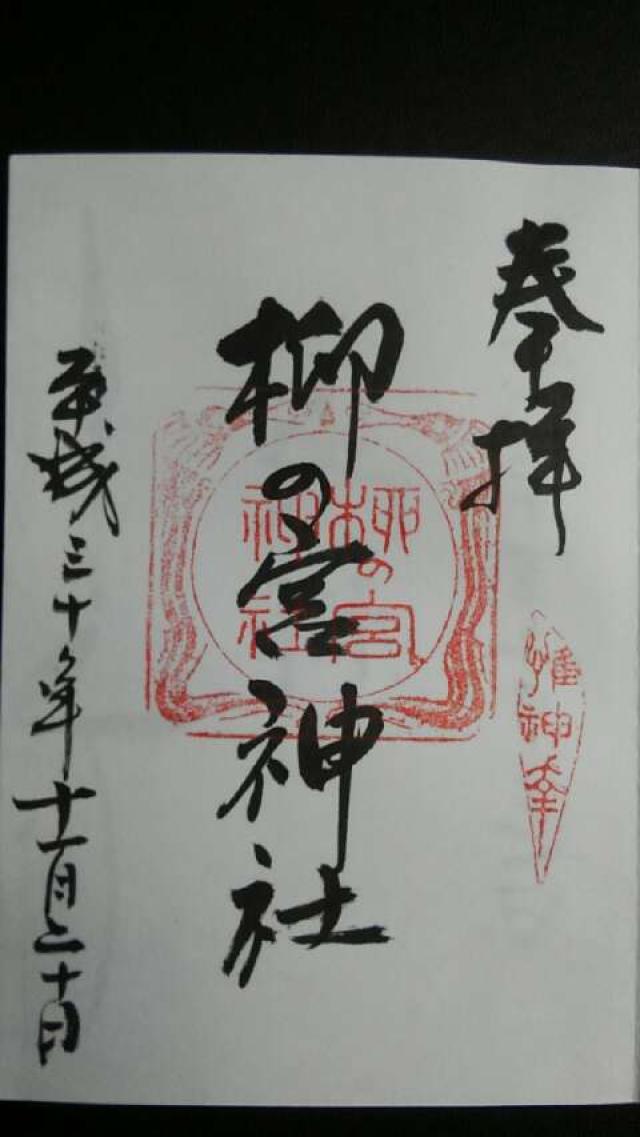 奉拝
柳の宮神社
平成三十年十一月二十日
柳の宮
神社
惟神幸